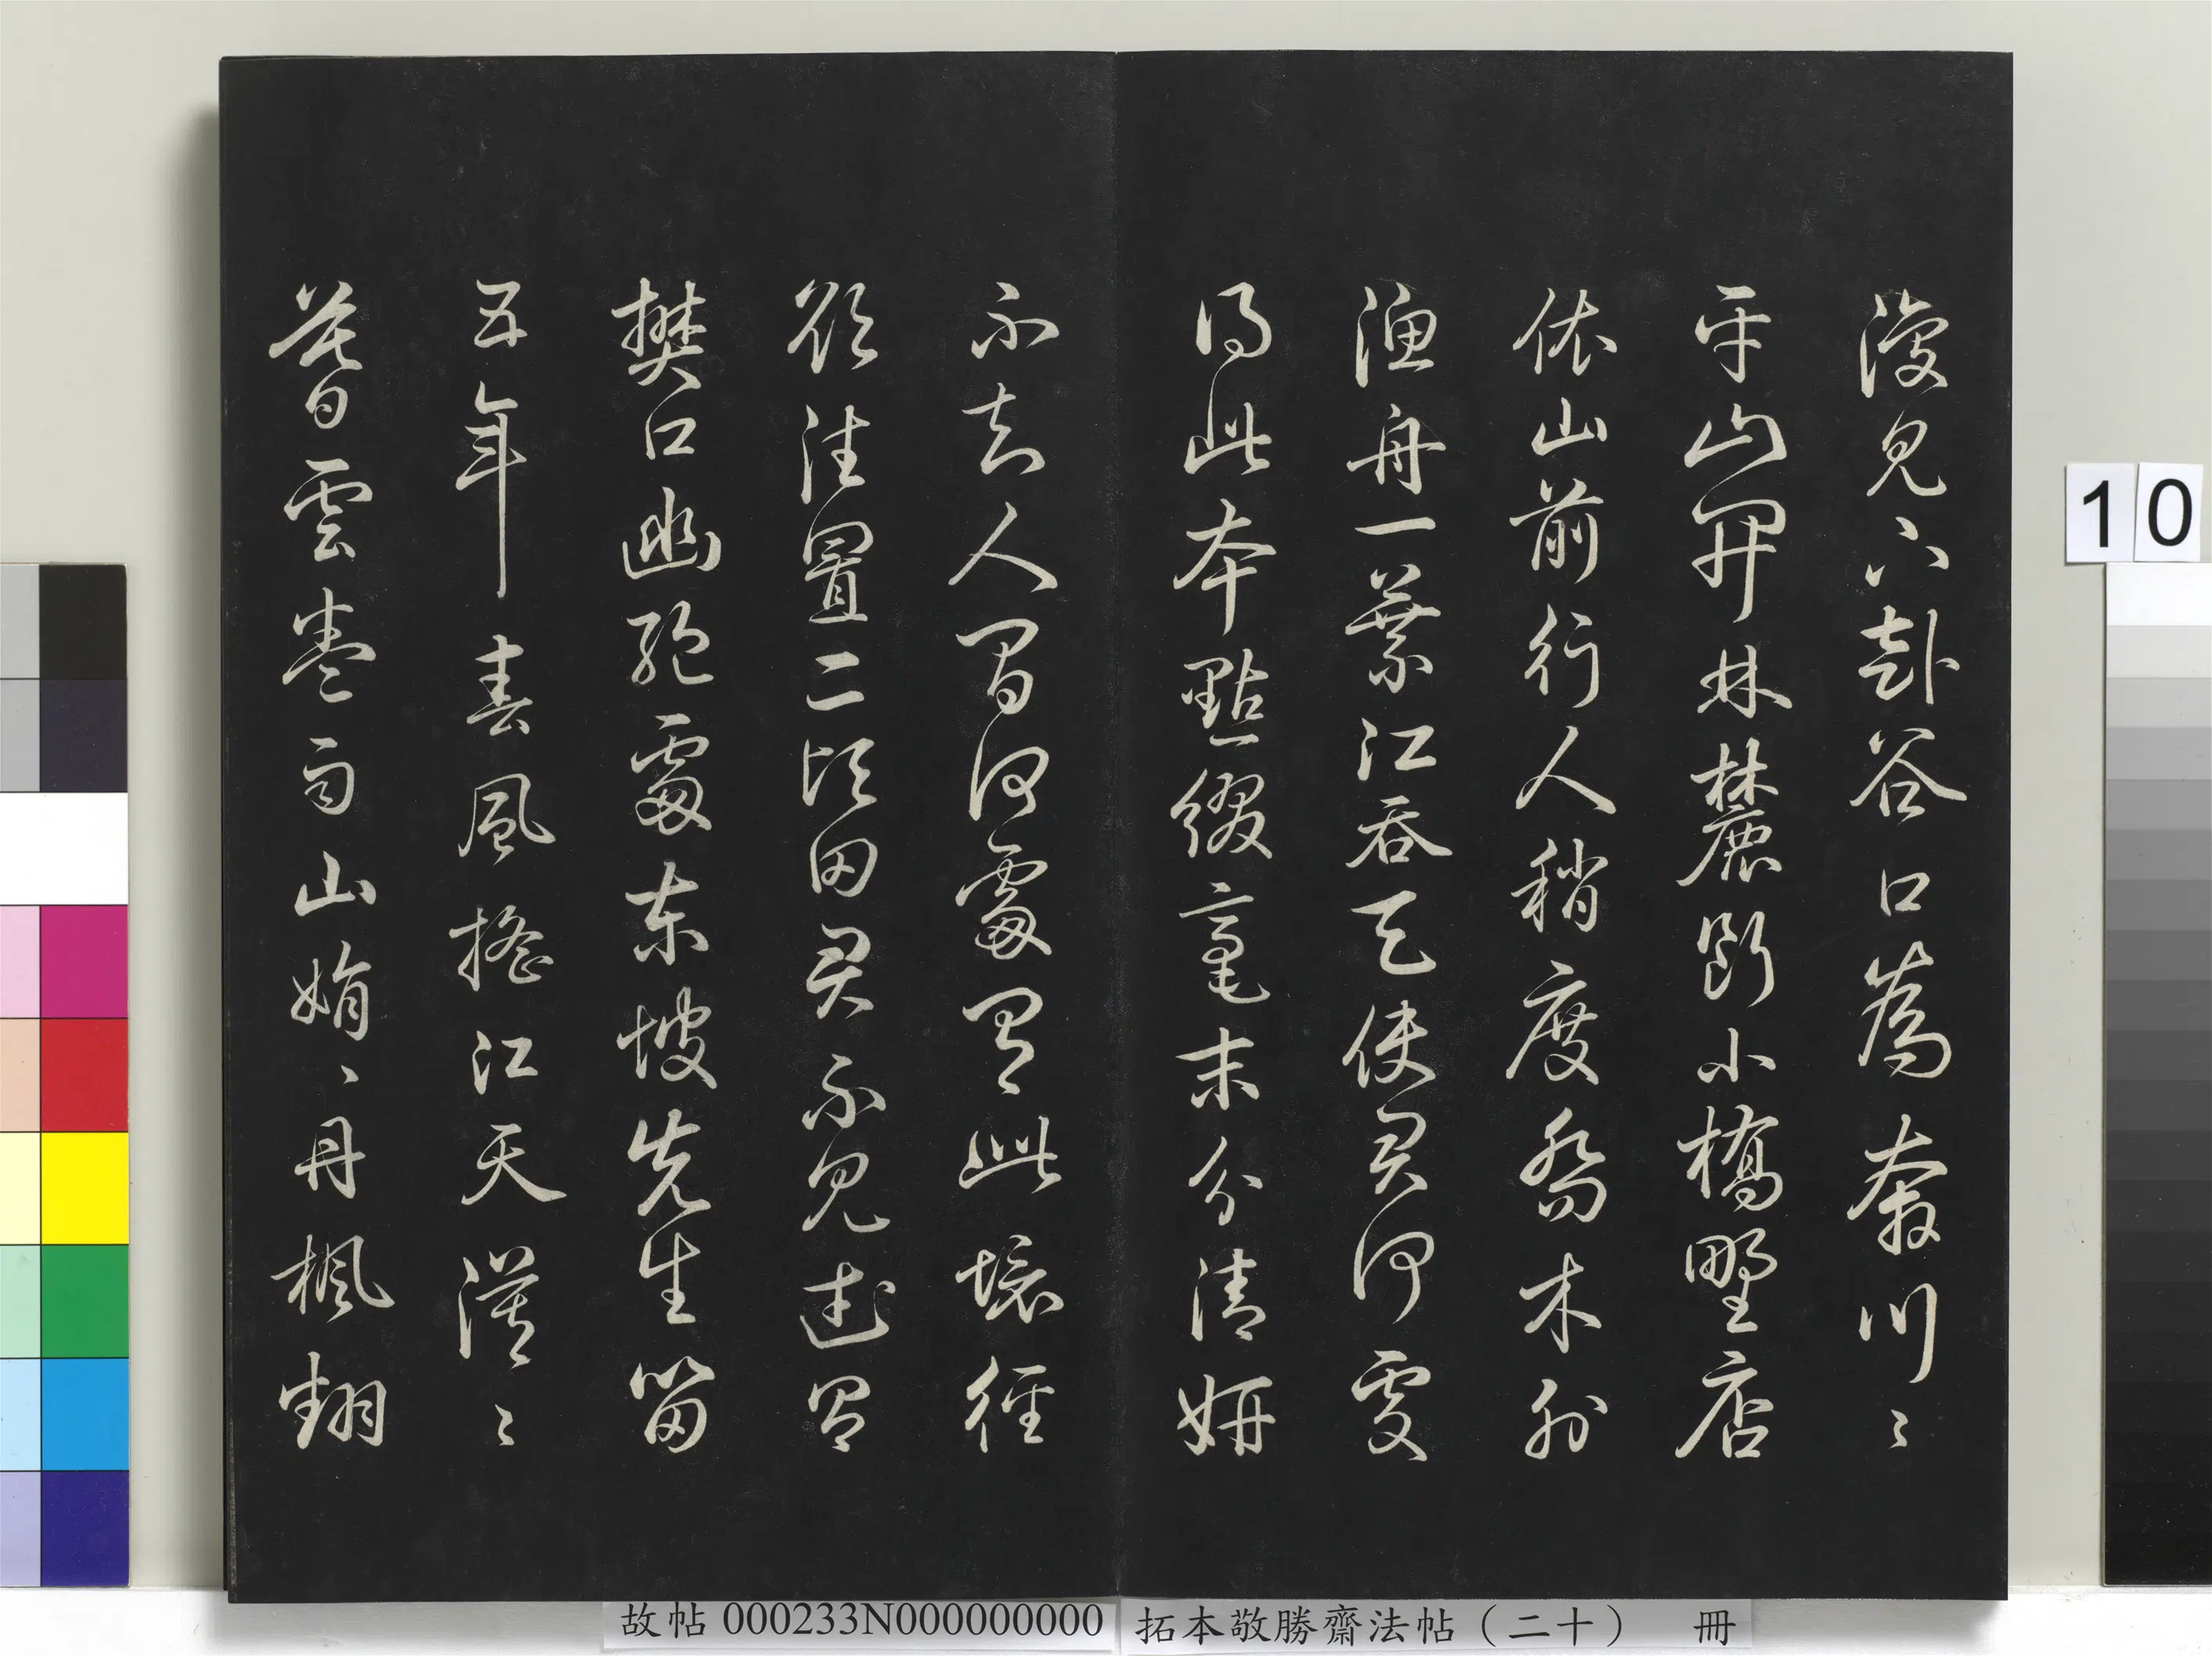 復見下赴谷口為奔川〻
平山開林麓斷小橋野店
依山前行人稍度喬木外
漁舟一葉江吞天使君何處
得此本點綴毫末分清妍
不知人間何處有此境徑
欲往置二頃田君不見武昌
樊口幽絕處東坡先生留
五年春風搖江天漠〻
暮雲卷雨山娟〻丹楓翻
10
故帖000233N000000000
拓本敬勝齋法帖（二十） 冊